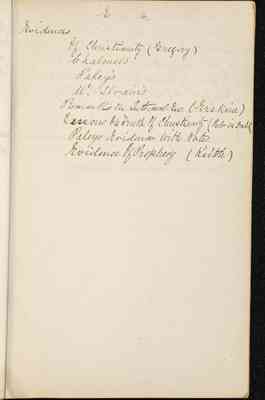 E
Evidences
Of Christianity (Gregory)
Chalmers's
Paley's
Mc. Ilvain's
Remarks on Internal Ev. (Erskine)
Truth of Christianity
Paleys Evidences With Notes
Evidence Of Prophecy (Keith)